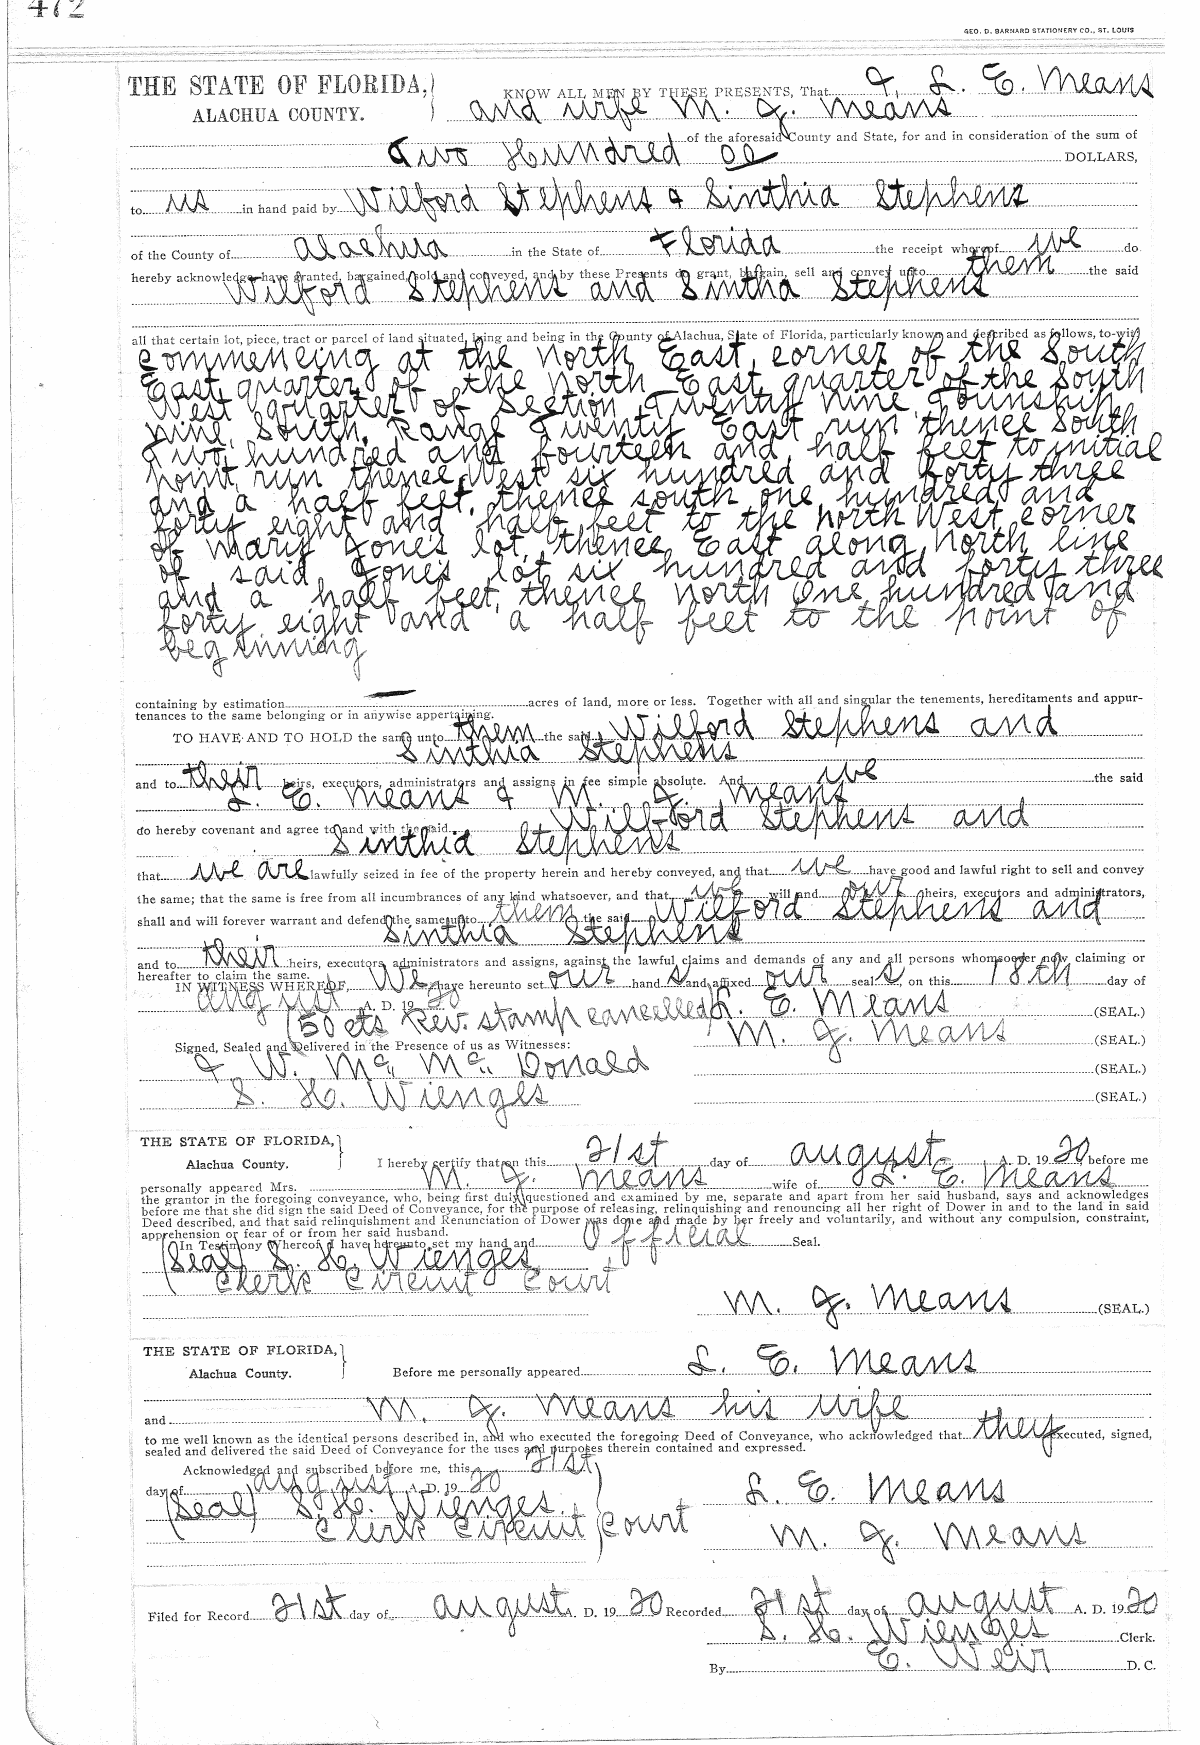 472
GEO. D. BARNARD STATIONERY CO., ST. LOUIS
THE STATE OF FLORIDA,
ALACHUA COUNTY.
KNOW ALL MEN BY THESE PRESENTS, That I, L. E. Means
and wife M. J. Means
of the aforesaid County and State, for and in consideration of the sum of
Two Hundred 00 DOLLARS,
to us in hand paid by Wilford Stephens & Sinthia Stephens
of the County of Alachua in the State of Florida the receipt whereof we do
hereby acknowledge have granted, bargained, sold and conveyed, and by these Presents do grant, bargain, sell and convey unto them the said
Wilford Stephens and Sintha Stephens
all that certain lot, piece, tract or parcel of land situated, lying and being in the County of Alachua, State of Florida, particularly known and described as follows, to-wit:
commencing at the north East corner of the South
East quarter of the North East quarter of the South
West quarter of Section Twenty nine Township
nine, South, Range Twenty East run thence South
Two hundred and fourteen and half feet to initial
point, run thence West six hundred and forty three
and a half feet, thence south one hundred and
forty eight and half feet to the north West corner
of Mary Jones lot, thence East along north line
of said Jones lot six hundred and forty three
and a half feet, thence north One hundred and
forty eight and a half feet to the point of
beginning
containing by estimation — acres of land, more or less. Together with all and singular the tenements, hereditaments and appur-
tenances to the same belonging or in anywise appertaining.
TO HAVE AND TO HOLD the same unto them the said Wilford Stephens and
Sinthia Stephens
and to their heirs, executors, administrators and assigns in fee simple absolute. And we the said
L. E. Means & M. J. Means
do hereby covenant and agree to and with the said Wilford Stephens and
Sinthia Stephens
that we are lawfully seized in fee of the property herein and hereby conveyed, and that we have good and lawful right to sell and convey
the same; that the same is free from all incumbrances of any kind whatsoever, and that we will and our heirs, executors and administrators,
shall and will forever warrant and defend the same unto them the said Wilford Stephens and
Sinthia Stephens
and to their heirs, executors, administrators and assigns, against the lawful claims and demands of any and all persons whomsoever now claiming or
hereafter to claim the same.
IN WITNESS WHEREOF, We have hereunto set our hand s and affixed our seal s, on this 18th day of
August A. D. 1920
(50 cts Rev. stamp cancelled) L. E. Means (SEAL.)
M. J. Means (SEAL.)
Signed, Sealed and Delivered in the Presence of us as Witnesses:
W. Mc. Mc. Donald (SEAL.)
S. H. Wienges (SEAL.)
THE STATE OF FLORIDA,
Alachua County.
I hereby certify that on this 21st day of August A. D. 1920 before me
personally appeared Mrs. M. J. Means wife of L. E. Means
the grantor in the foregoing conveyance, who, being first duly questioned and examined by me, separate and apart from her said husband, says and acknowledges
before me that she did sign the said Deed of Conveyance, for the purpose of releasing, relinquishing and renouncing all her right of Dower in and to the land in said
Deed described, and that said relinquishment and Renunciation of Dower was done and made by her freely and voluntarily, and without any compulsion, constraint,
apprehension or fear of or from her said husband.
In Testimony Whereof I have hereunto set my hand and Official Seal.
(Seal) S. H. Wienges
Clerk Circuit Court
M. J. Means (SEAL.)
THE STATE OF FLORIDA,
Alachua County.
Before me personally appeared L. E. Means
and M. J. Means his wife
to me well known as the identical persons described in, and who executed the foregoing Deed of Conveyance, who acknowledged that they executed, signed,
sealed and delivered the said Deed of Conveyance for the uses and purposes therein contained and expressed.
Acknowledged and subscribed before me, this 21st
day of August A. D. 1920
(Seal) S. H. Wienges
Clerk Circuit Court
L. E. Means
M. J. Means
Filed for Record 21st day of August A. D. 1920 Recorded 21st day of August A. D. 1920
S. H. Wienges Clerk.
By E. Weir D. C.